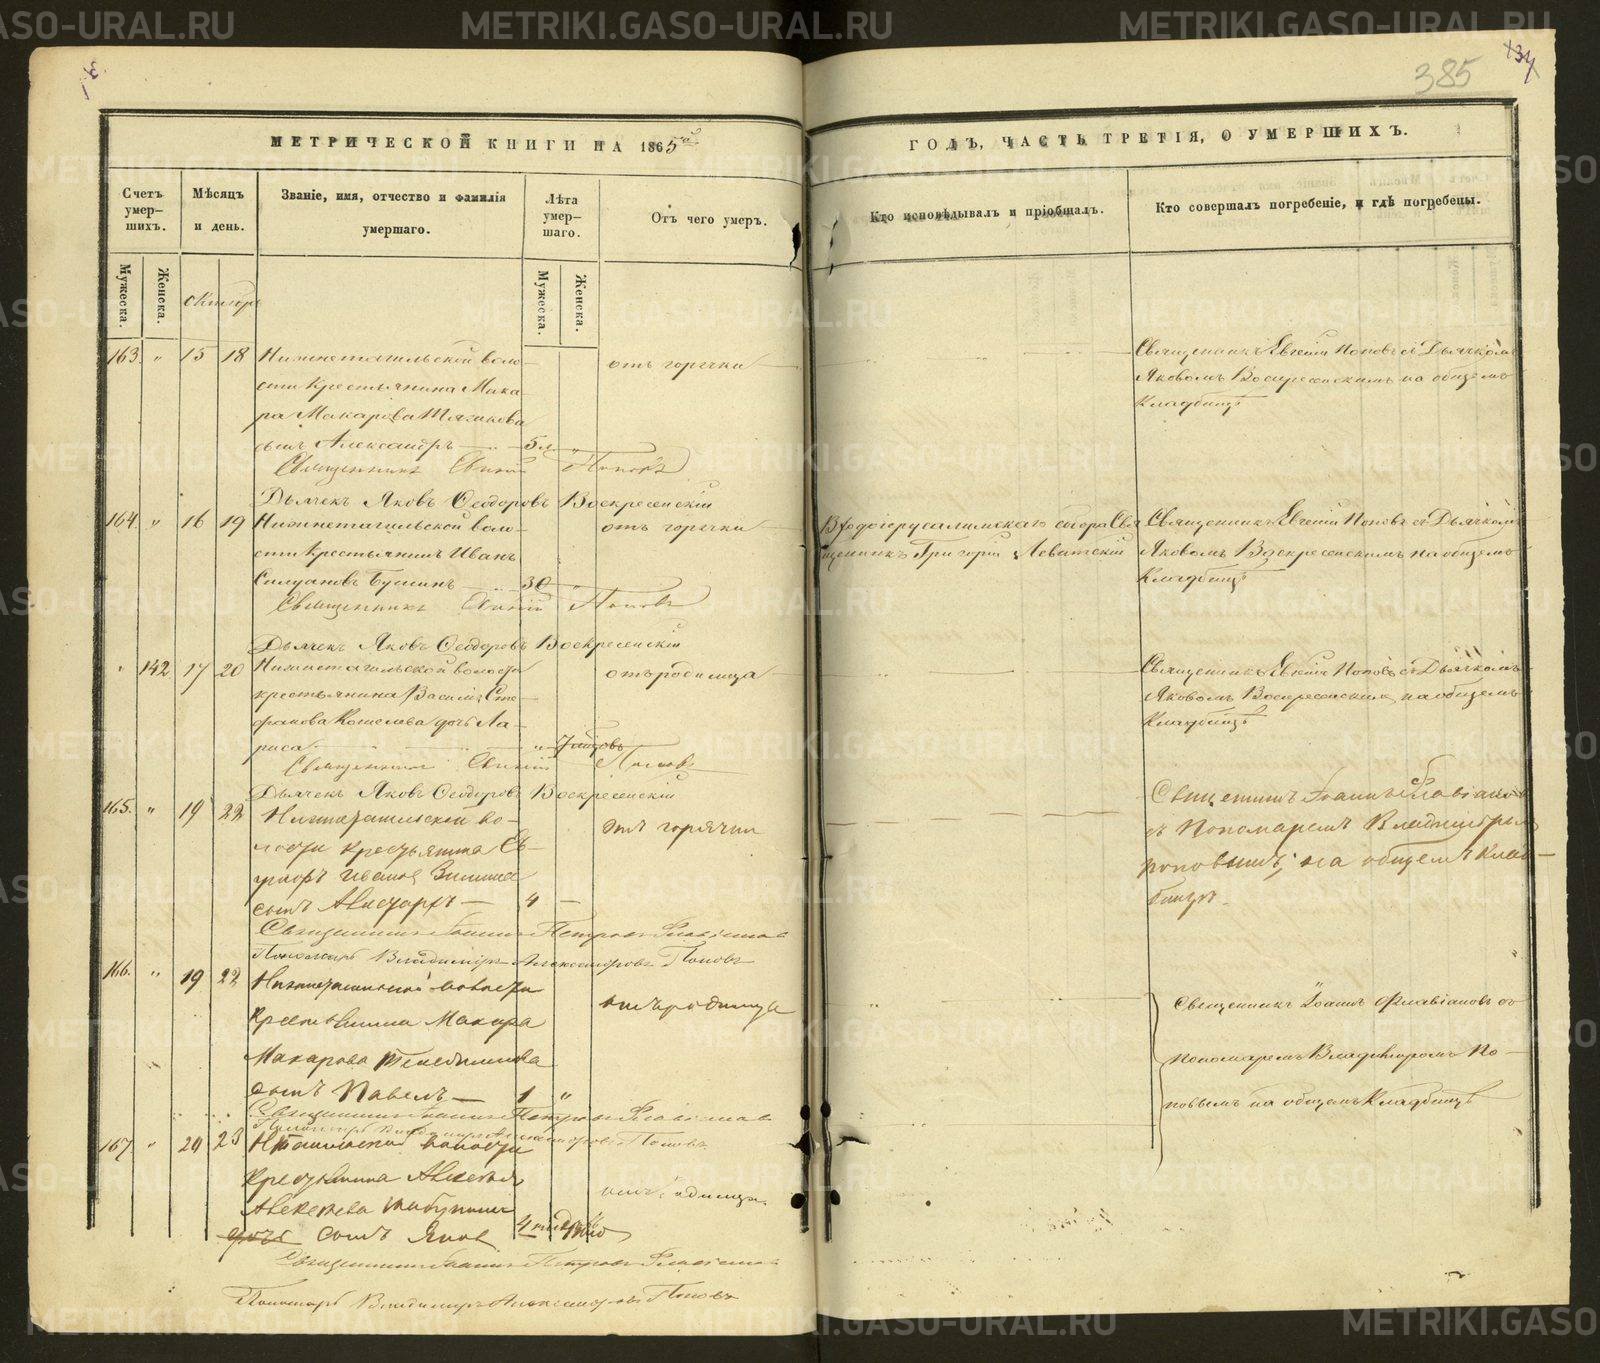 385
МЕТРИЧЕСКОЙ КНИГИ НА 1865й
Счетъ умер-шихъ.
Мѣсяцъ и день.
Званіе, имя, отчество и фамилія умершаго.
Лѣта умер-шаго.
Отъ чего умеръ.
Мужеска.
Женска.
Мужеска.
Женска.
октябрь
163. " 15 18 Нижнетагильской воло-
сти Крестьянина Мака-
ра Макарова
сынъ Александръ 5 л "
отъ горячки
Священникъ Евгеній Поповъ
Дьячекъ Яковъ Ѳеодоровъ Воскресенскій
164. " 16 19 Нижнетагильской воло-
сти Крестьянинъ Иванъ
Силуановъ 30 "
отъ горячки
Священникъ Евгеній Поповъ
Дьячекъ Яковъ Ѳеодоровъ Воскресенскій
" 142 17 20 Нижнетагильской волости
крестьянина Василія Сте-
фанова Кошелева дочь Ла-
риса "
отъ родимца
Священникъ Евгеній Поповъ
Дьячекъ Яковъ Ѳеодоровъ Воскресенскій
165. " 19 22 Нижнетагильской во-
лости крестьянина Ев-
Иванова Зимина
сынъ 4
отъ горячки
Священникъ Іоаннъ Петровъ Флавіановъ
Пономарь Владиміръ Александровъ Поповъ
166. " 19 22 Нижнетагильской волости
Крестьянина Макара
Макарова
сынъ Павелъ 1 "
отъ родимца
Священникъ Іоаннъ Петровъ Флавіановъ
Пономарь Владиміръ Александровъ Поповъ
167 " 20 23 Нтагильской волости
Крестьянина Алексея
Алексеева
дочь сынъ Яковъ 4
отъ родимца
Священникъ Іоаннъ Петровъ Флавіановъ
Пономарь Владиміръ Александровъ Поповъ
ГОДЪ, ЧАСТЬ ТРЕТІЯ, О УМЕРШИХЪ.
Кто исповѣдывалъ и пріобщалъ.
Кто совершалъ погребеніе, и гдѣ погребены.
Священникъ Евгеній Поповъ съ Дьячкомъ
Яковомъ Воскресенскимъ на общемъ
Кладбищѣ
Входоіерусалимскаго собора Свя
щенникъ Григорій Левитскій
Священникъ Евгеній Поповъ съ Дьячкомъ
Яковомъ Воскресенскимъ на общемъ
Кладбищѣ
Священникъ Евгеній Поповъ съ Дьячкомъ
Яковомъ Воскресенскимъ на общемъ
Кладбищѣ
Священникъ Іоаннъ Флавіановъ
съ Пономаремъ Владиміромъ
Поповымъ, на общемъ клад-
бищѣ.
Священникъ Іоаннъ Флавіановъ со
Пономаремъ Владиміромъ По-
повымъ на общемъ Кладбищѣ
METRIKI.GASO-URAL.RU